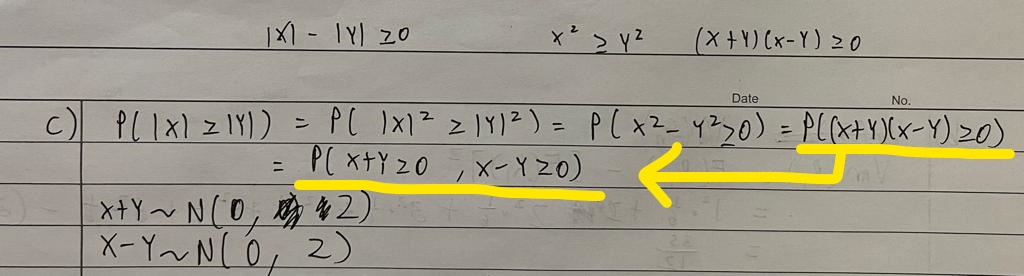 |X| - |Y| ≥0 x² ≥ Y² (X+Y)(X-Y) ≥0
Date No.
c) P(|X| ≥|Y|) = P( |X|² ≥|Y|²) = P( X²- Y²≥0) = P((X+Y)(X-Y) ≥0)
= P( X+Y ≥0 , X-Y ≥0)
X+Y ~ N(0, 2)
X-Y ~ N(0, 2)